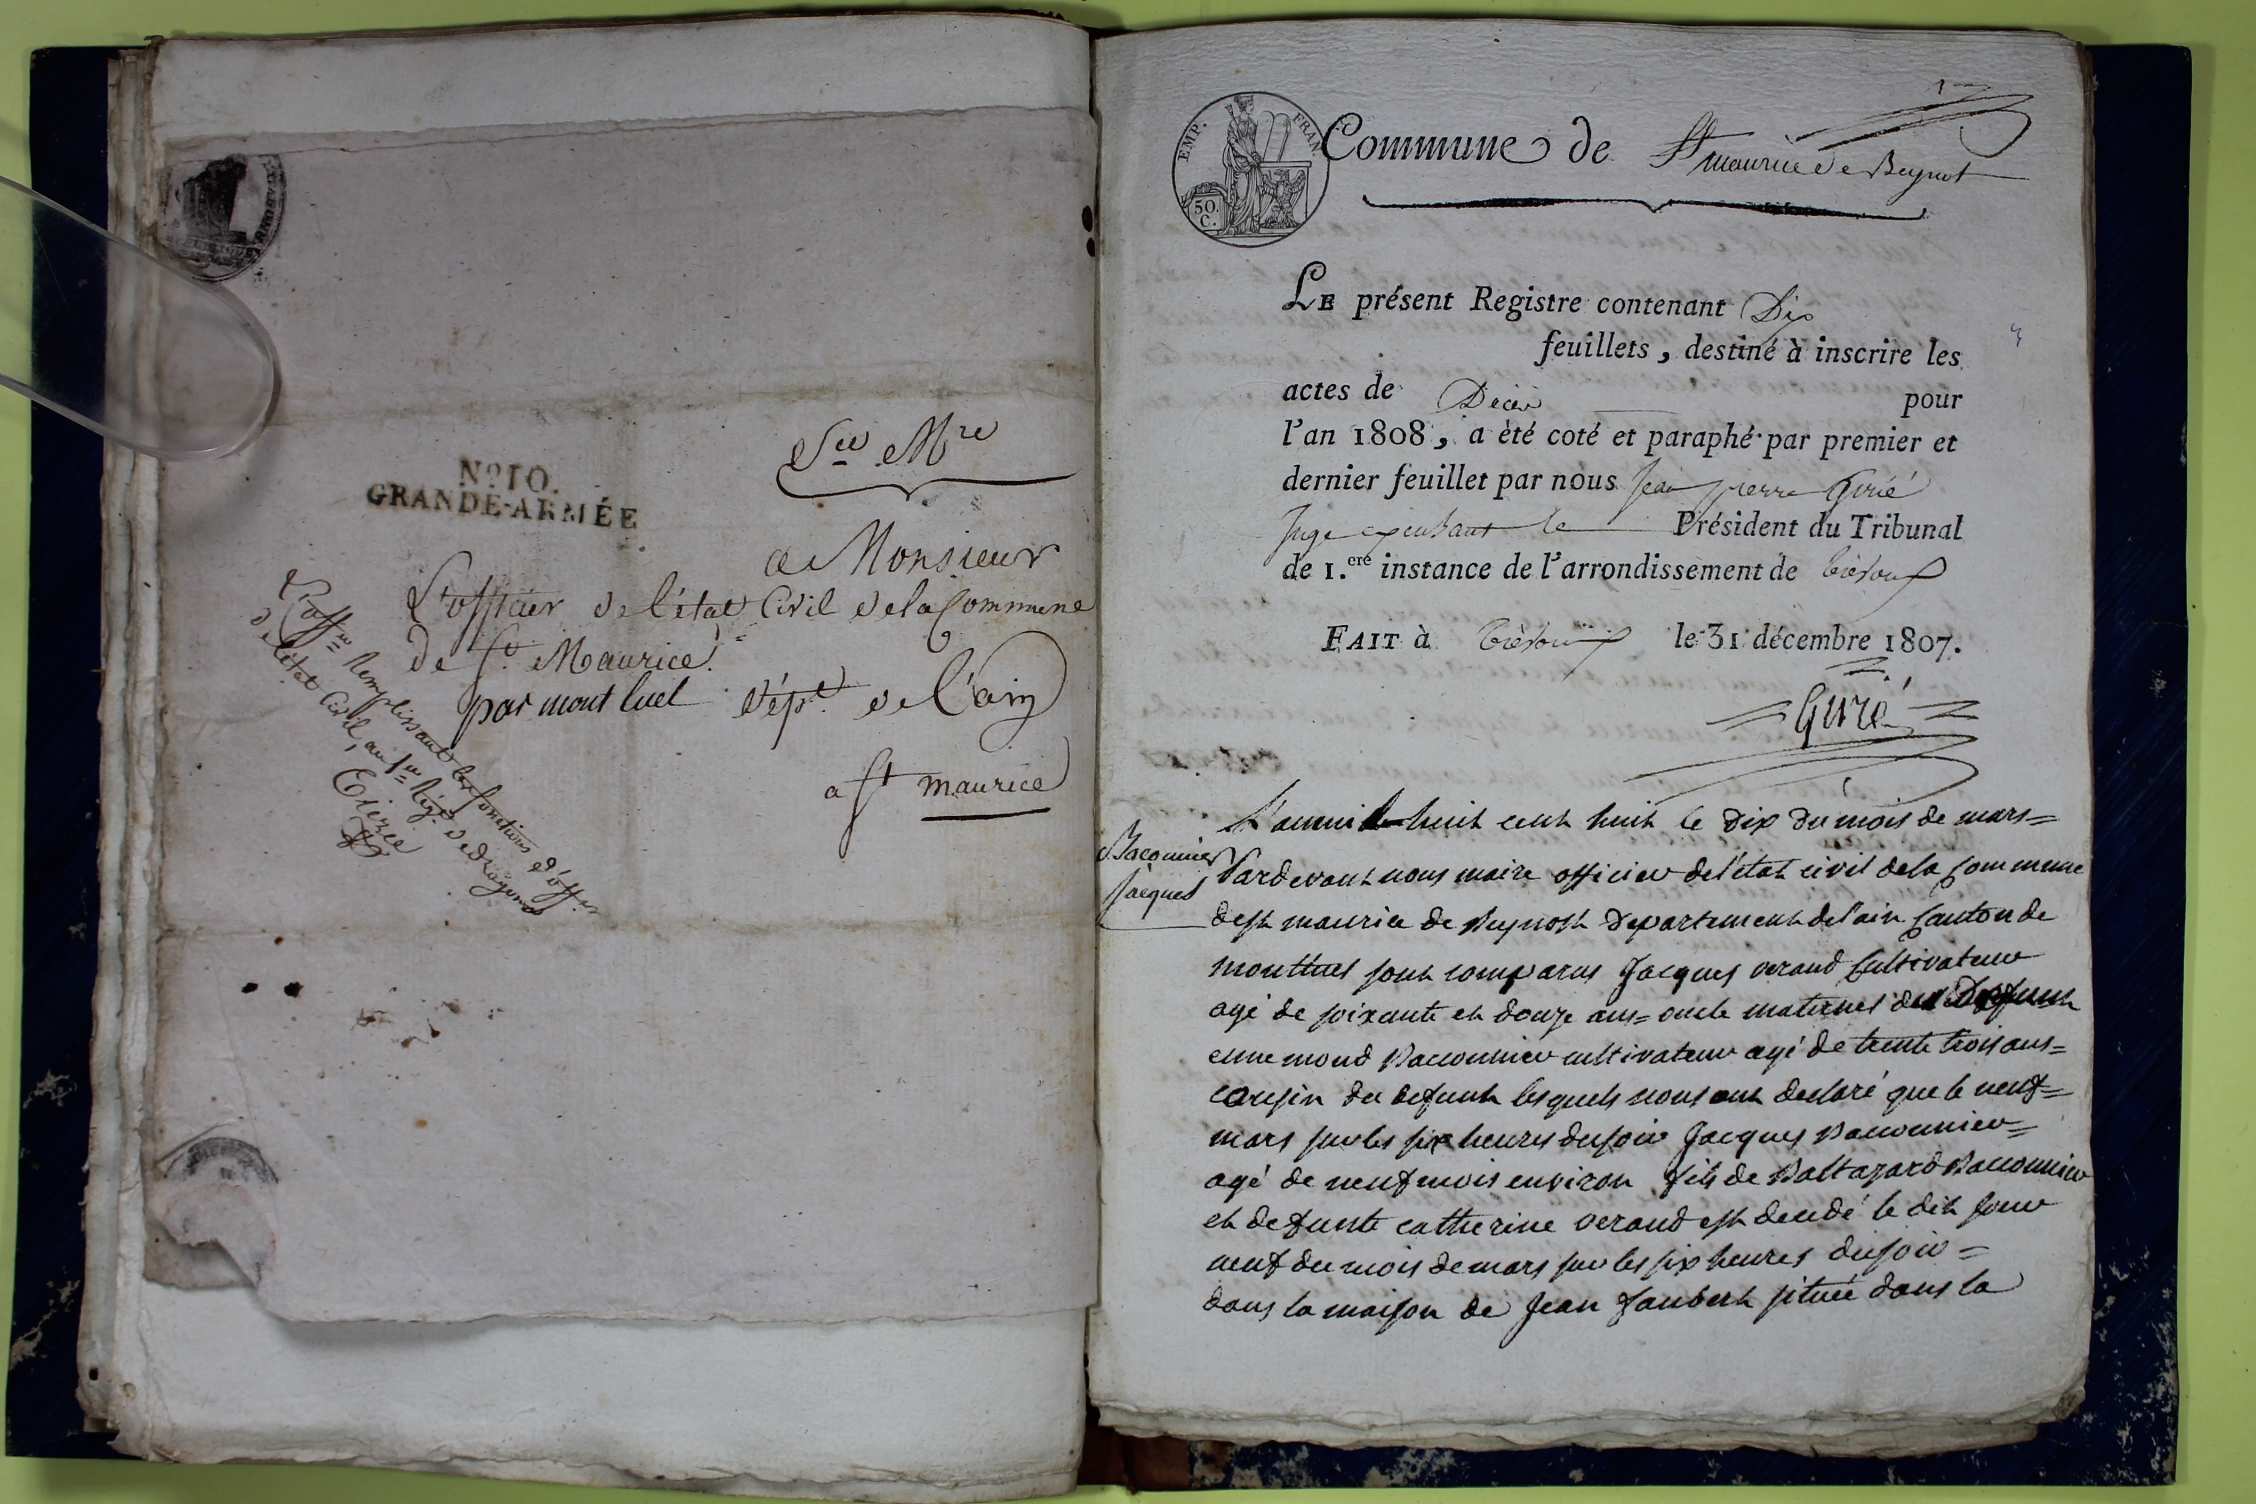 N.º 10.
GRANDE-ARMÉE
Sce Mre
a Monsieur
L'officier de l'état Civil de la Commune
de St. Maurice.
par mont luel dépt. de l'ain
a St maurice
L'offer Remplissant les fonctions d'offier
de l'état Civil, au 1er Régt. de dragons
EMP. FRAN.
50. C.
Commune de St maurice de Beynot
LE présent Registre contenant Dix
feuillets, destiné à inscrire les
actes de Décès pour
l'an 1808, a èté coté et paraphé par premier et
dernier feuillet par nous Jean pierre Girié
Juge exerçant le Président du Tribunal
de 1.ere instance de l'arrondissement de trévoux
FAIT à trévoux le 31 décembre 1807.
Girié
L'an mil huit cent huit le dix du mois de mars=
Baconnier
Jacques
Pardevant nous maire officier de l'état civil de la Commune
de st maurice de Beynost Departement de l'ain Canton de
montluel sont comparus Jacques verand Cultivateur
agé de soixante et douze ans= oncle maternel du Defunt
ennemond Bacconnier cultivateur agé de trente trois ans=
cousin du defunt lesquels nous ont declaré que le neuf=
mars sur les six heures du soir Jacques Bacconnier=
agé de neuf mois environ fils de Baltazard Bacconnier
et defunte catherine verand est decedé le dit jour
neuf du mois de mars sur les six heures du soir=
dans la maison de Jean Jaubert située dans la